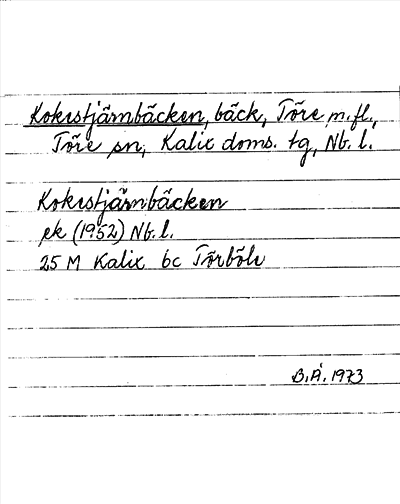 Kokrstjärnbäcken, bäck, Töre m.fl.,
Töre sn, Kalix doms. tg, Nb. l.
Kokrstjärnbäcken
ek (1952) Nb. l.
25 M Kalix 6c Törböle
B.Å. 1973